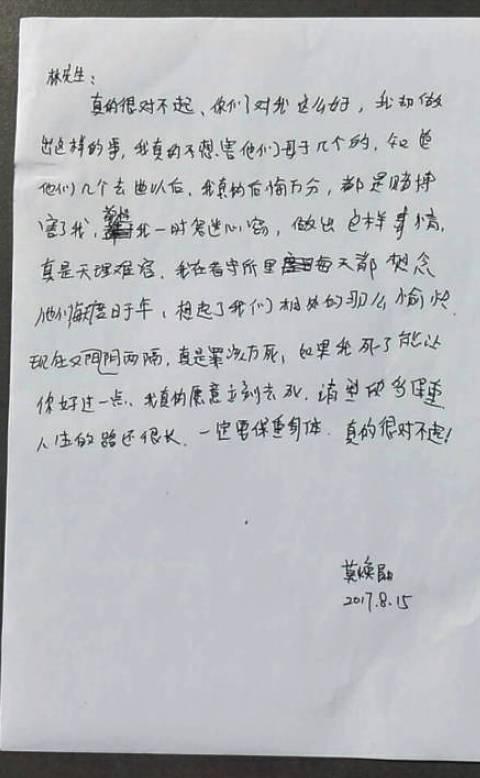 林先生：
真的很对不起、你们对我这么好，我却做
出这样的事，我真的不想害他们母子几个的，知道
他们几个去世以后，我真的后悔万分，都是赌博
害了我，我一时鬼迷心窍，做出这样事情，
真是天理难容，我在看守所里每天都想念
他们，每度日于年，想起了我们相处的那么愉快，
现在又阴阳两隔，真是罪该万死，如果我死了能让
你好过一点，我真的愿意立刻去死，请您多保重
人生的路还很长，一定要保重身体，真的很对不起！
莫焕晶
2017.8.15